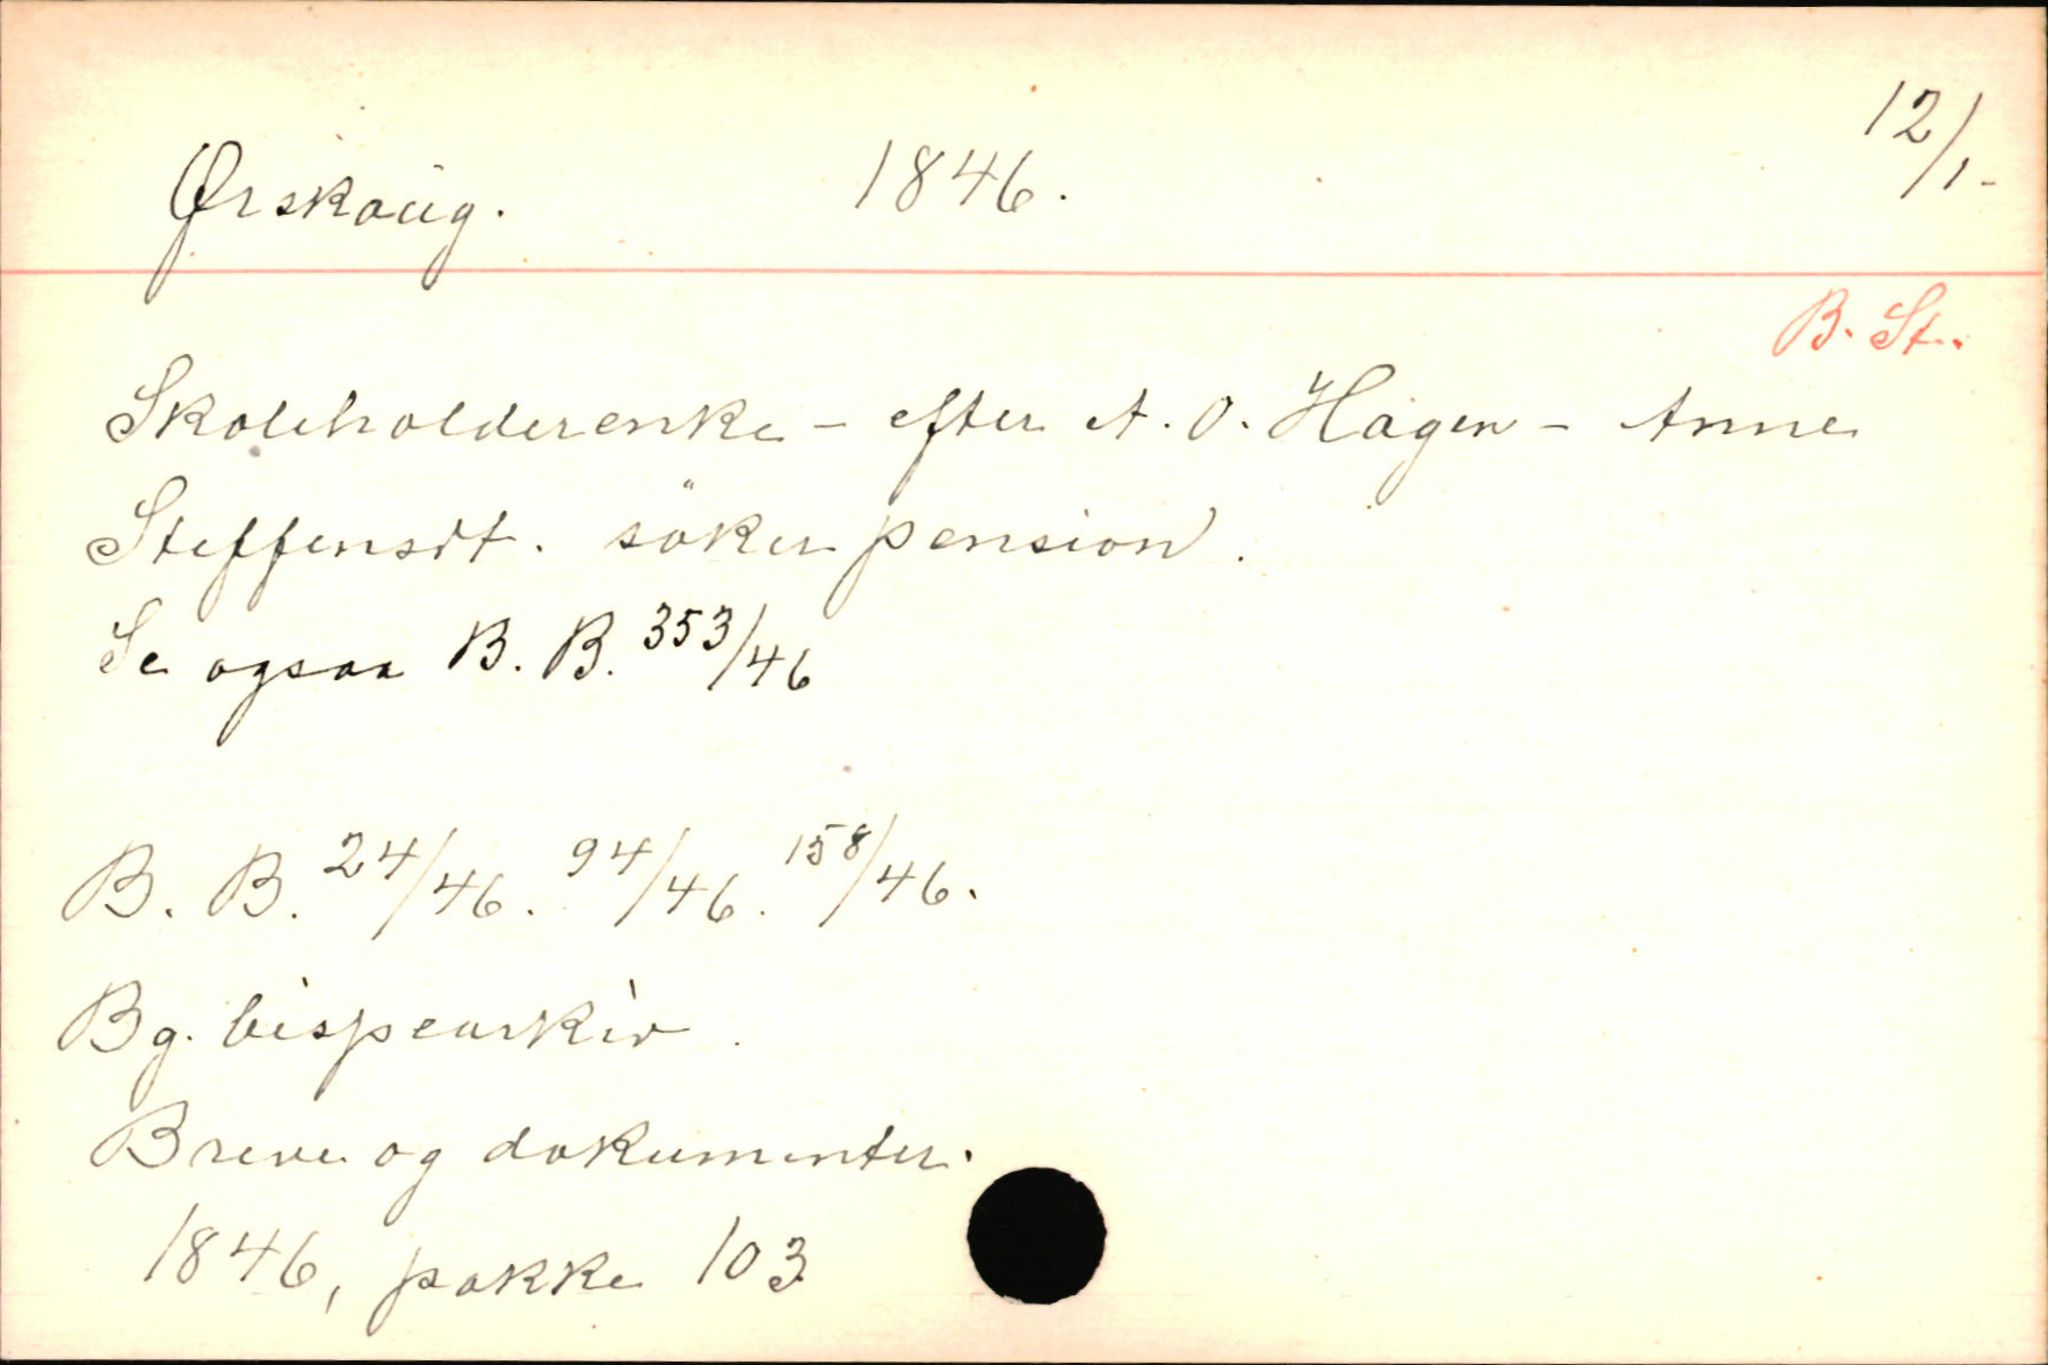 Ørskoug. 1846. 12/1-
B. St.
Skoleholderenke - efter A. O. Hagen - Anne
Steffensdt. söker pension.
Se ogsaa B. B. 353/46
B. B. 24/46. 94/46. 158/46.
Bg. bispearkiv.
Breve og dokumenter.
1846, pakke 103